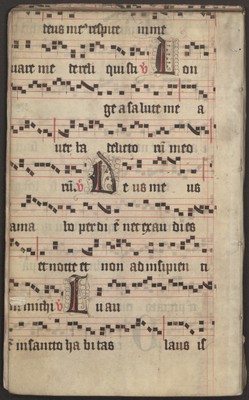 teus me respice in me
uare me dereli quisti V Lon
ge a salute me a
uer ba delicto rū meo
rū. V De us me us
clama bo per di ē nec exau di es
et nocte et non ad insipien ti
am michi V Tu au
ē in sancto ha bitas laus is